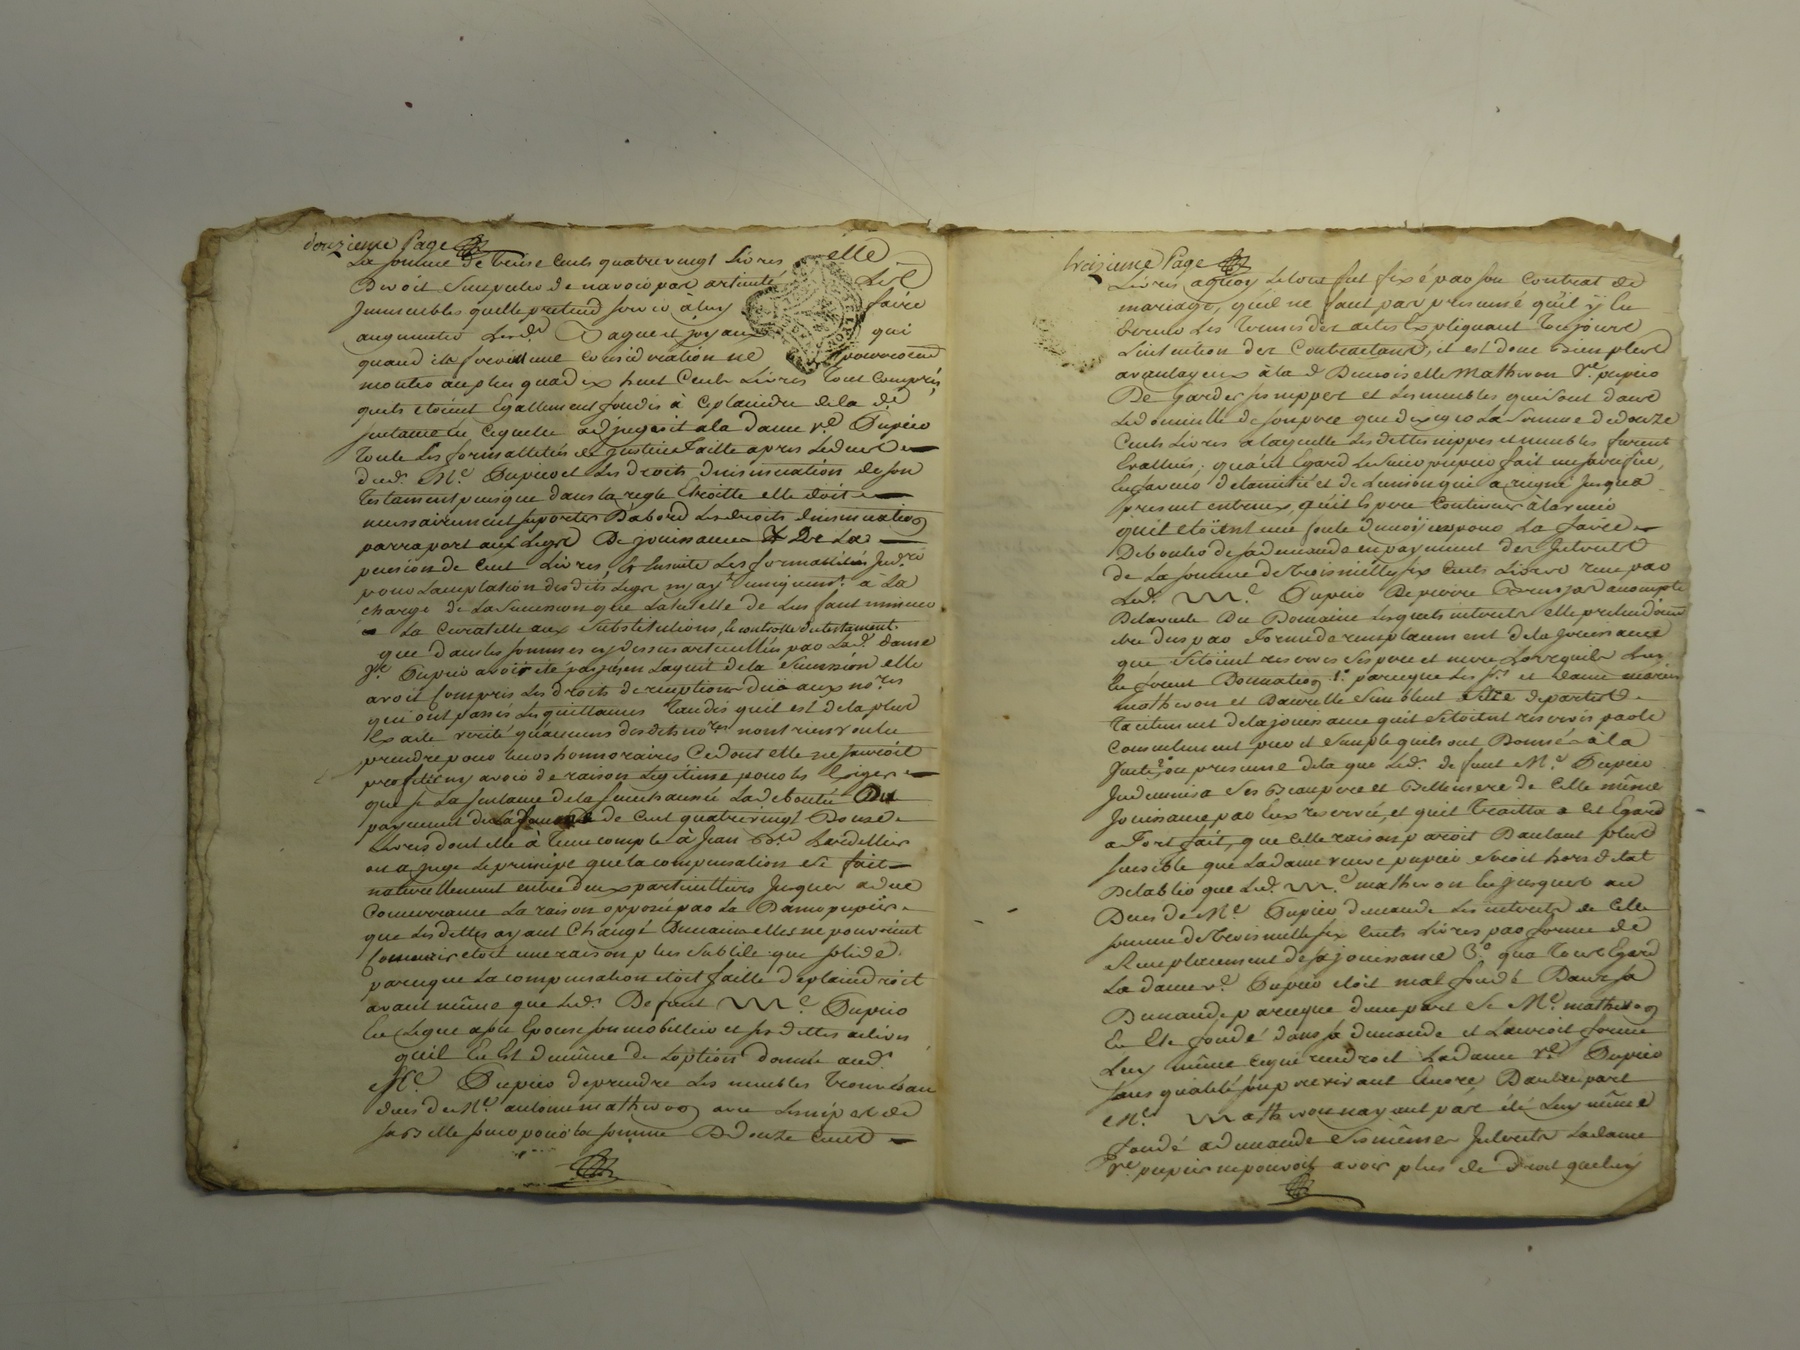 douzieme Page
La somme de treise cents quatrevingt Livres elle
Devoit simputer de navoir pas articulé Les
Immeubles quelle pretend servir à luy faire
augmenter Lesd. Bague et joyaux qui
quand ils seroit une consideration ne pourroient
monter au plus qua dix huit Cents Livres tout compris,
quils etoient Egallement fondés à ceplaindre de la de
sentence en cequelle adjugeoit a la dame ve Dupuio
toute Les formallités de justice faitte apres le deces
dud. Me. Dupuio et Les droits dinsinuation de son
testament puisque dans la regle Etroitte elle doit
necessairement suporter Dabord Les droits dinsinuation
par raport aux Legs De jouissance & De La
pension de cent Livres, & Ensuite Les formallités
pour Lacceptation desdits Legs nyayt. uniquemt. a La
charge de La succession que La tutelle de
La curatelle aux substitutions, le controlle du testament.
que dans les sommes cy dessus articullées par Lad. dame
ve. Dupuio avoir eté payés en Laquit de la succession elle
avoit compris Les droits de reception dûs aux nores
qui ont passés Les quittances tandis quil est de la plus
Exacte verité quaucuns desdts nores nont rien voulu
prendre pour leurs honnoraires Ce dont elle ne sauroit
profiter ny avoir de raison Legitime pour les Exiger
que si La sentence de la senechaussée La deboutée Du
payement de La somme de cent quatrevingt Douse
Livres dont elle à tenu compte à Jean Bte. Lardellier
on a jugé Le principe que la compensation se fait
naturellement entre deux particulliers Jusques a due
Concurrance La raison opposée par La Dame pupier
que Les dettes ayant Changé De nature elles ne pouvoient
etoit une raison plus subtile que solide
parceque La compensation etoit faitte de plain droit
avant même que Led. Defunt Me Dupuio
Eu Legué a son Epouse son mobillier et ses dettes actives
quil En Est de même de Loption donnée aud.
Me. Dupuio de prendre Les meubles trouvés au
deces de Me. antoine mathevon avec Les nipes de
sa Belle soeur pour la somme De douze Cents
treizieme Page
Livres aquoy Letout fut fixé par son Contrat de
mariage, quil ne faut pas presumé quil ÿ En
Erreur Les termes des actes Expliquant toujours
Lintention des Contractants, il est donc bien plus
avantageux à la d Demoiselle Mathevon ve. pupier
De garder ses nippes et Les meubles qui sont dans
Le domicille de son pere que dexiger La somme de douze
Cents Livres a laquelle Lesdittes nippes et meubles furent
Evallués; qu'a cet Egard Le Sieur pupier fait un sacrifice,
En faveur de lamitié et de Lunion qui a regné jusqu'a
present entreux, quil Espere Continuer à lavenir
quil etoient une foule de moÿens pour La faire
Debouter de sa demande en payement des Interets
de La somme de trois mille six Cents Livres recue par
Led. Me. Dupuio De pierre a compte
De la vente Du Domaine Lesquels interets elle pretend
etre dus par forme de remplacement de la Jouissance
que setoient reservés Ses pere et mere Lorsquils Luy
En firent Donnation 1o. parceque Les sr. et dame marin
mathevon et Daurelle semblent Etre departis
tacitement de la jouissance quil setoient reservés par le
Consentement pur et simple quils ont Donné à la
on presume dela que Led. defunt Me. Dupuio
Indemnisa Ses Beaupere et Bellemere de Cette même
Jouissance par Eux reservée, et quil traitta a cet Egard
a Forfait, que Cette raison paroit Dautant plus
sensible que La dame veuve pupier seroit hors detat
Detablir que Led. Me. mathevon Eu jusques au
Deces de Me. Dupuio demandé Les interets de Cette
somme de trois mille six Cents Livres par forme de
Remplacement de sa jouissance 3o. qua tout Egard
La dame ve. Dupuio etoit mal fondé Dans sa
Demande parceque dune part Si Me. mathevon
Eu Ete fondé dans sa demande et Lauroit formé
Luy même cequi rendroit Ladame ve. Dupuio
sans qualité son pere vivant Encore Dautre part
Me. Mathevon nayant pas été Luy même
fondé a demandé Ses mêmes Interets La dame
ve. pupier ne pouvoit avoir plus de Droit que luy